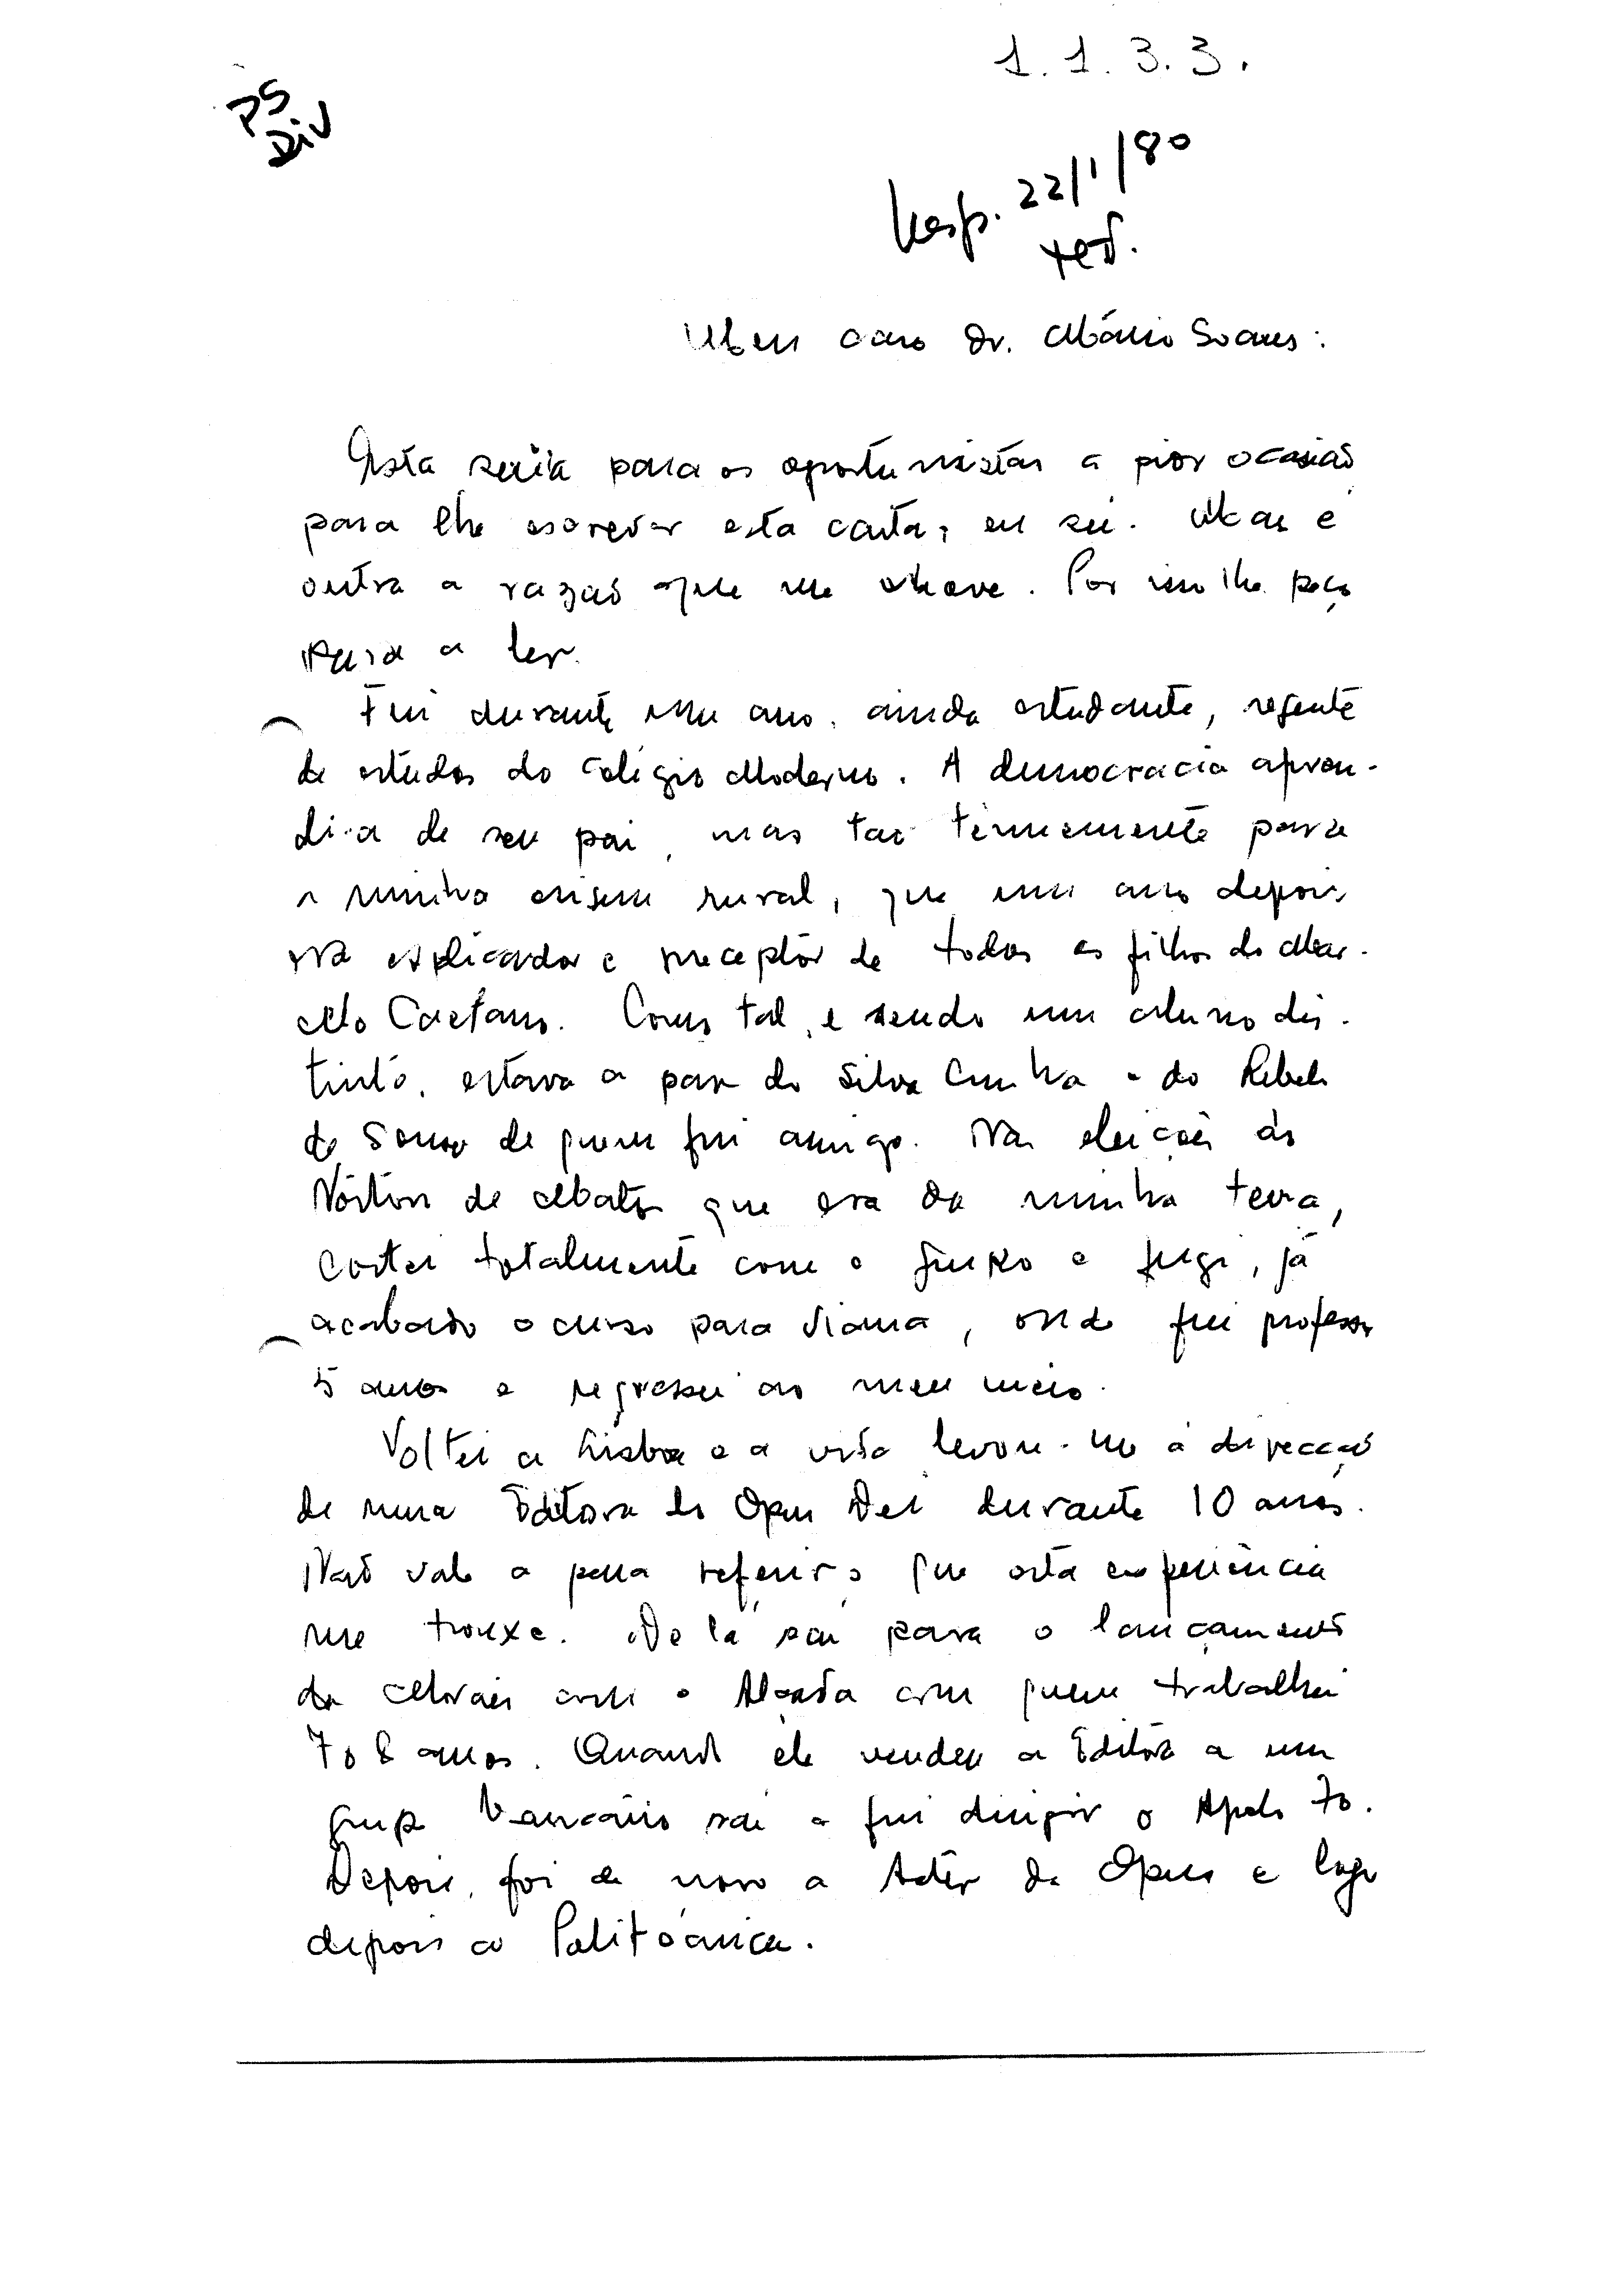 1.1.3.3.
PS
Div
Resp. 22/1/80
Meu caro Dr. Mário Soares:
Esta seria para os oportunistas a pior ocasião
para lhe escrever esta carta, eu sei. Mas é
outra a razão que me move. Por isso lhe peço
para a ler.
Fui durante um ano, ainda estudante, regente
de estudos do Colégio Moderno. A democracia apren-
di-a de seu pai, mas tão tenuemente para
a minha origem rural, que um ano depois
era explicador e preceptor de todos os filhos do Mar-
cello Caetano. Como tal, e sendo um aluno dis-
tinto, estava a par do Silva Cunha e do Rebelo
de Sousa de quem fui amigo. Nas eleições do
Nórton de Matos que era da minha terra,
cortei totalmente com o grupo e fugi, já
acabado o curso para Viana, onde fui professor
5 anos e regressei ao meu meio.
Voltei a Lisboa e a vida levou-me à direcção
de uma Editora do Opus Dei durante 10 anos.
Não vale a pena referir o que esta experiência
me trouxe. De lá saí para o lançamento
da Morais com o Alçada com quem trabalhei
7 o 8 anos. Quando ele vendeu a Editora a um
grupo bancário saí e fui dirigir o Apolo 70.
Depois, foi de novo a Aster da Opus e logo
depois a Politécnica.